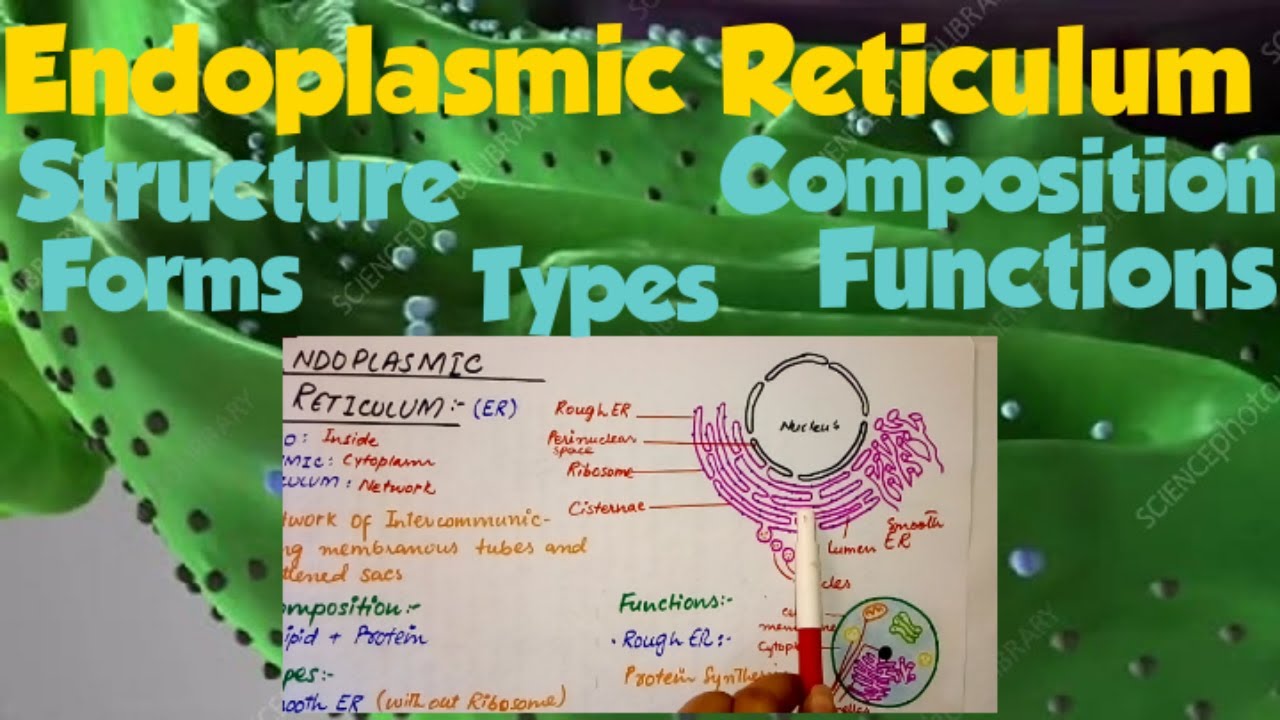 Endoplasmic Reticulum
Structure
Composition
Forms
Types
Functions
NDOPLASMIC
RETICULUM:- (ER)
O: Inside
MIC: Cytoplasm
CULUM: Network
twork of Intercommunic-
ng membranous tubes and
ttened sacs
omposition:-
ipid + Protein
pes:-
mooth ER (without Ribosome)
Rough ER
Perinuclear
space
Ribosome
Cisternae
Nucleus
Lumen
Smooth
ER
cles
Functions:-
• Rough ER:-
Protein Synthesis
ce
membrane
Cytopl
nelles
SCIENCEphotOLIBRARY
SCIENCEphoto